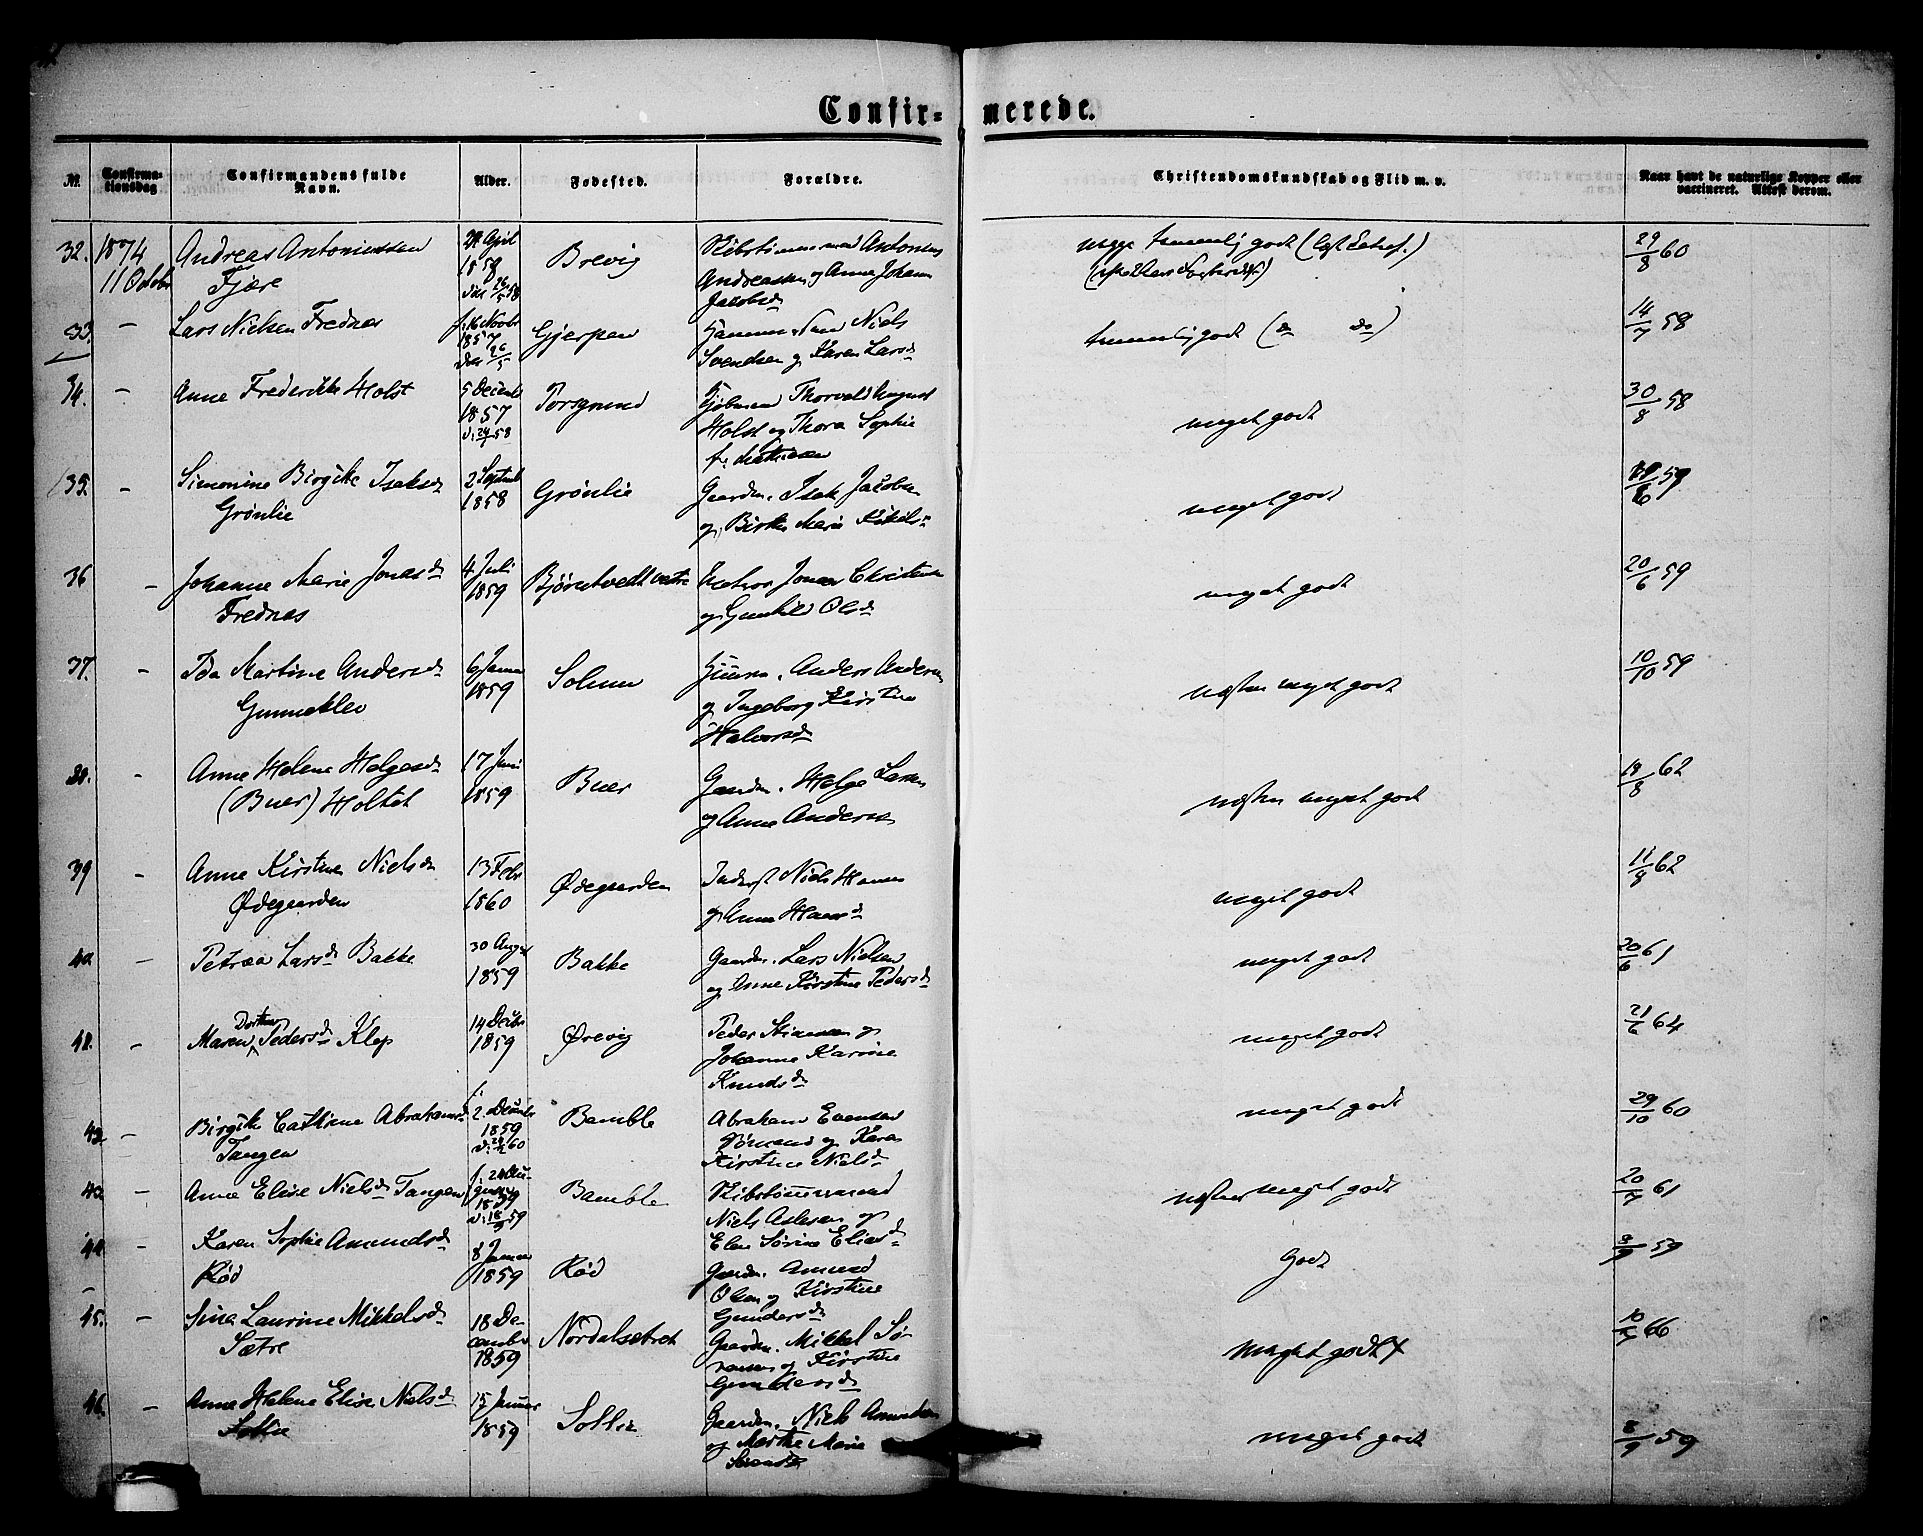 Confir-merede.
N. Confirmationsdag Confirmandens fulde Navn. Alder. Fødested. Forældre. Christendomskundskab og Flid m. v. Naar havt de naturlige Kopper eller vaccineret. Attest derom.
32. 1874 11 Octobr Andreas Antoniussen Fjære April 1859 Brevig Antonius Andreassen og Anne Johanne Jacobsd. temmelig godt 29/8 60
33. — Lars Nielsen Frednes f. 16 Novbr 1857 Gjerpen Niels Svendsen og Karen Larsd. temmelig godt (do do) 14/7 58
34. — Anne Frederikke Holst 5 Decemb 1857 Porsgrund Thorvald August Holst og Thora Sophie meget godt 30/8 58
35. — Simonine Birgitte Isaksd. Grønlie 2 Septemb 1858 Grønlie Gaardm. Isak Jacobsen og Marie meget godt 59
36 — Johanne Marie Jonasd. Frednæs 4 Juli 1859 Bjørntvedt vestre Jonas Christensen og Gunhild Olsd. meget godt 20/6 59
37. — Ida Martine Andersd. Gunneklev 6 Januar 1859 Solum Anders Andersen og Ingeborg Kirstine Halvorsd. næsten meget godt 10/10 59
38. — Anne Helene Helgesd. (Buer) Holtet 17 Juni 1859 Buer Gaardm. Helge Larsen og Anne Andersd. næsten meget godt 19/8 62
39 — Anne Kirstine Nielsd. Ødegaarden 13 Feb 1860 Ødegaarden Inderst Niels Hansen og Anne Hansd. meget godt 11/8 62
40. — Petræa Larsd. Bakke 30 August 1859 Bakke Gaardm. Lars Nielsen og Anne Kirstine Pedersd. meget godt 20/6 61
41. — Maren Dortea Pedersd. Klep 14 Decbr 1859 Ørevig Peder og Johanne Karine Knudsd. meget godt 21/6 64
42. — Birgitte Cathrine Abrahamsd. Tangen f. 2. Decembr 1859 Bamble Abraham Evensen og Karen Kirstine Nielsd. meget godt 29/10 60
43. — Anne Elise Nielsd. Tangen Bamble Skibstømmermand Niels Aslesen og Elen Sørine Eliasd. næsten meget godt 20/7 61
44. — Karen Sophie Amundsd. Rød 8 Januar 1859 Rød Gaardm. Amund Olsen og Kirstine Gundersd. Godt 59
45. — Sina Laurine Mikkelsd. Sætre 18 December 1859 Nordalsætret Gaardm. Mikkel Sørensen og Kirstine meget godt 66
46. — Anne Helene Elise Nielsd. Sollie 15 Januar 1859 Sollie Gaardm. Niels Amundsen og Marthe Marie meget godt 8/9 59